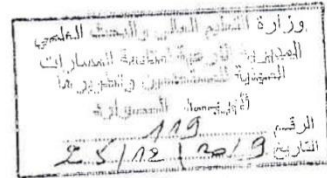 وزارة التعليم العالي والبحث العلمي
المديرية الفرعية لمتابعة المسارات
المهنية للمستخدمين وتطويرها
الرقم 119
التاريخ 25/12/2019